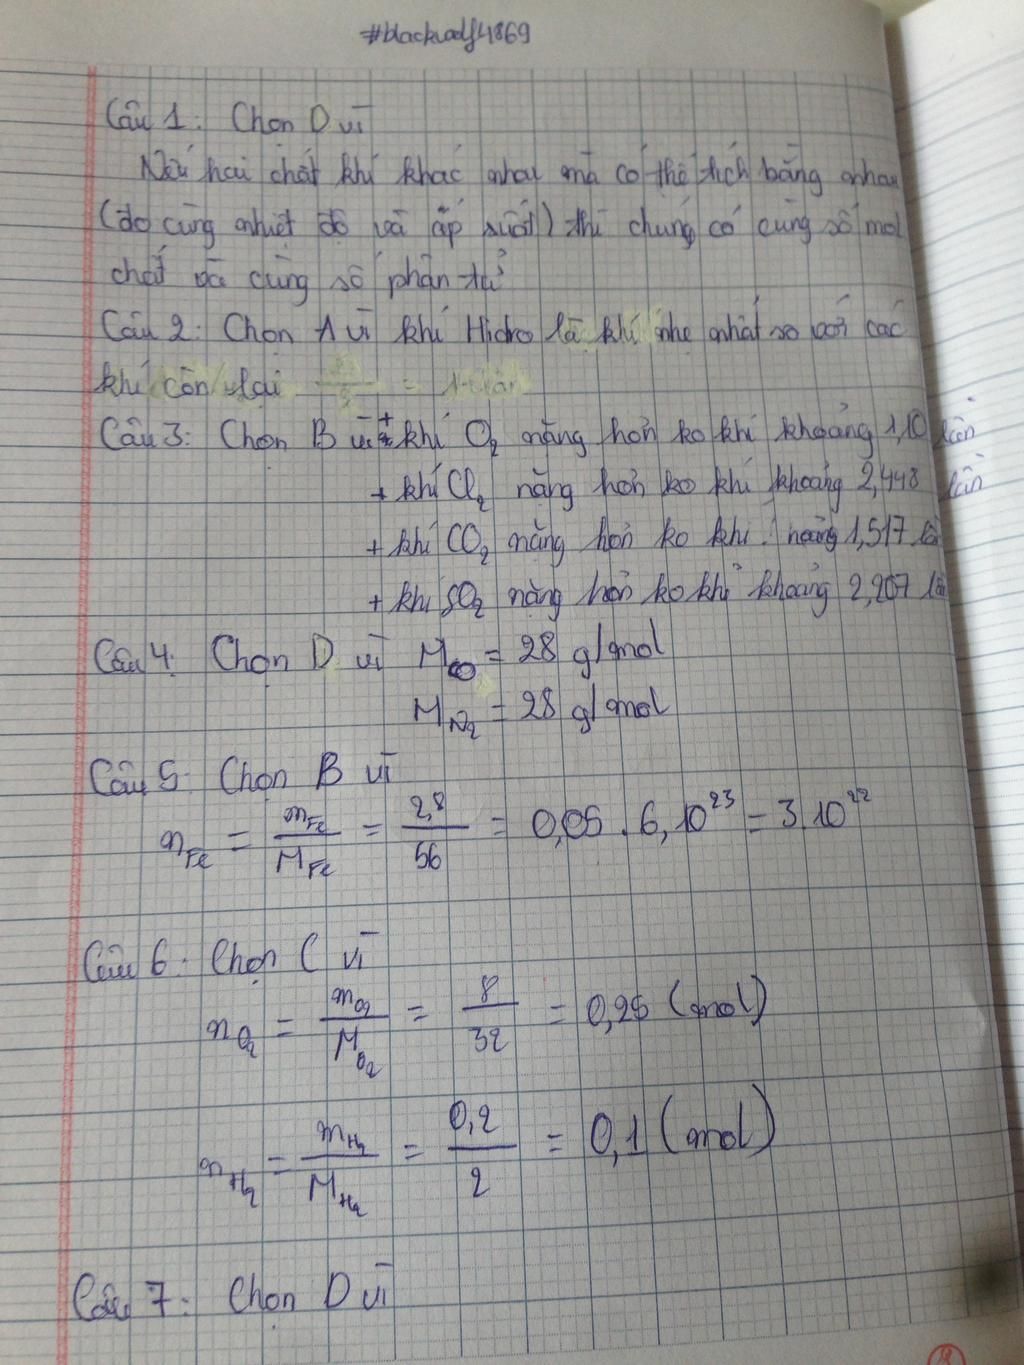 #blackwolf4869
Câu 1: Chọn D vì
Nếu hai chất khí khác nhau mà có thể tích bằng nhau
(đo cùng nhiệt độ và áp suất) thì chúng có cùng số mol
chất và cùng số phân tử
Câu 2: Chọn A vì khí Hidro là khí nhẹ nhất so với các
khí còn lại
Câu 3: Chọn B vì: + khí O₂ nặng hơn ko khí khoảng 1,10 lần
+ khí Cl₂ nặng hơn ko khí khoảng 2,448 lần
+ khí CO₂ nặng hơn ko khí hoảng 1,517 lầ
+ khí SO₂ nặng hơn ko khí khoảng 2,207 lần
Câu 4: Chọn D vì M_CO = 28 g/mol
M_N₂ = 28 g/mol
Câu 5: Chọn B vì
n_Fe = m_Fe/M_Fe = 2,8/56 = 0,05 . 6,10²³ = 3.10²²
Câu 6: Chọn C vì
n_O₂ = m_O₂/M_O₂ = 8/32 = 0,25 (mol)
n_H₂ = m_H₂/M_H₂ = 0,2/2 = 0,1 (mol)
Câu 7: Chọn D vì